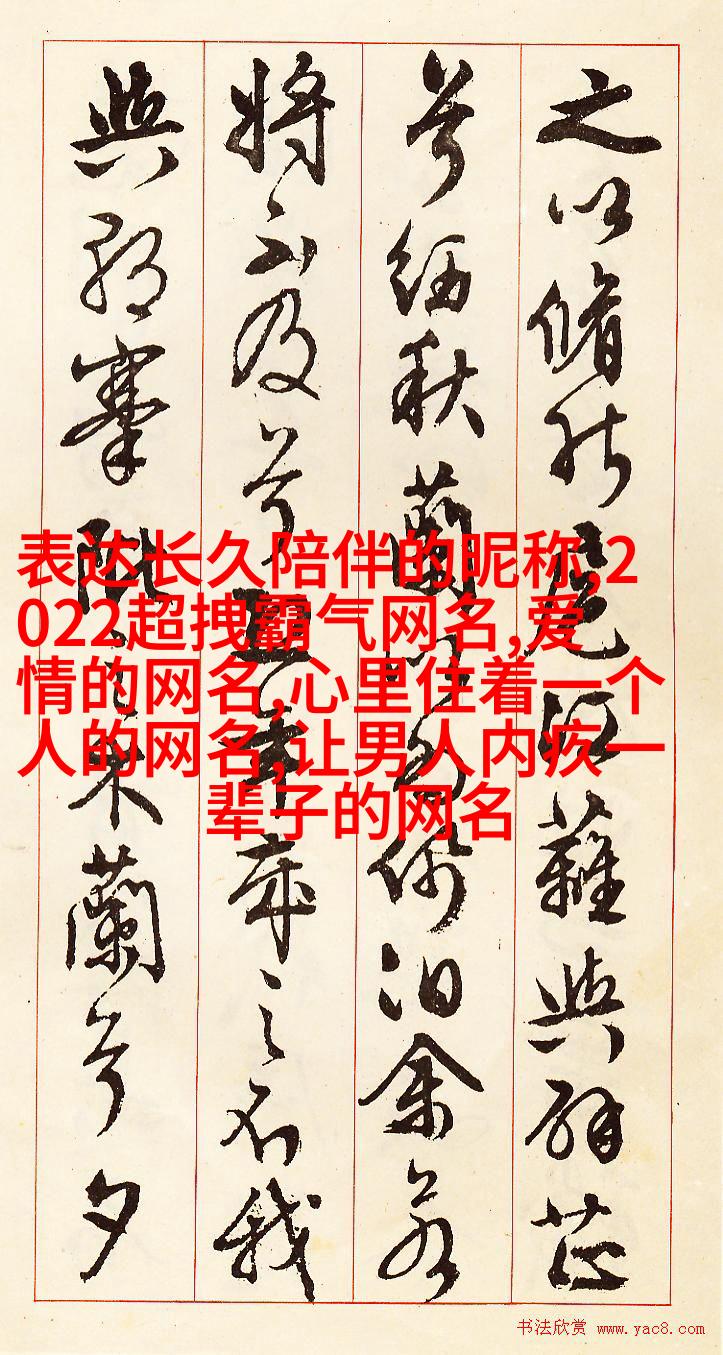 之以脩能扈江蘺與辟芷
兮紉秋蘭以為佩汩余若
將不及兮恐年歲之不我
與朝搴阰之木蘭兮夕
表达长久陪伴的昵称,2
022超拽霸气网名,爱
情的网名,心里住着一个
人的网名,让男人内疚一
辈子的网名
书法欣赏 www.yac8.com